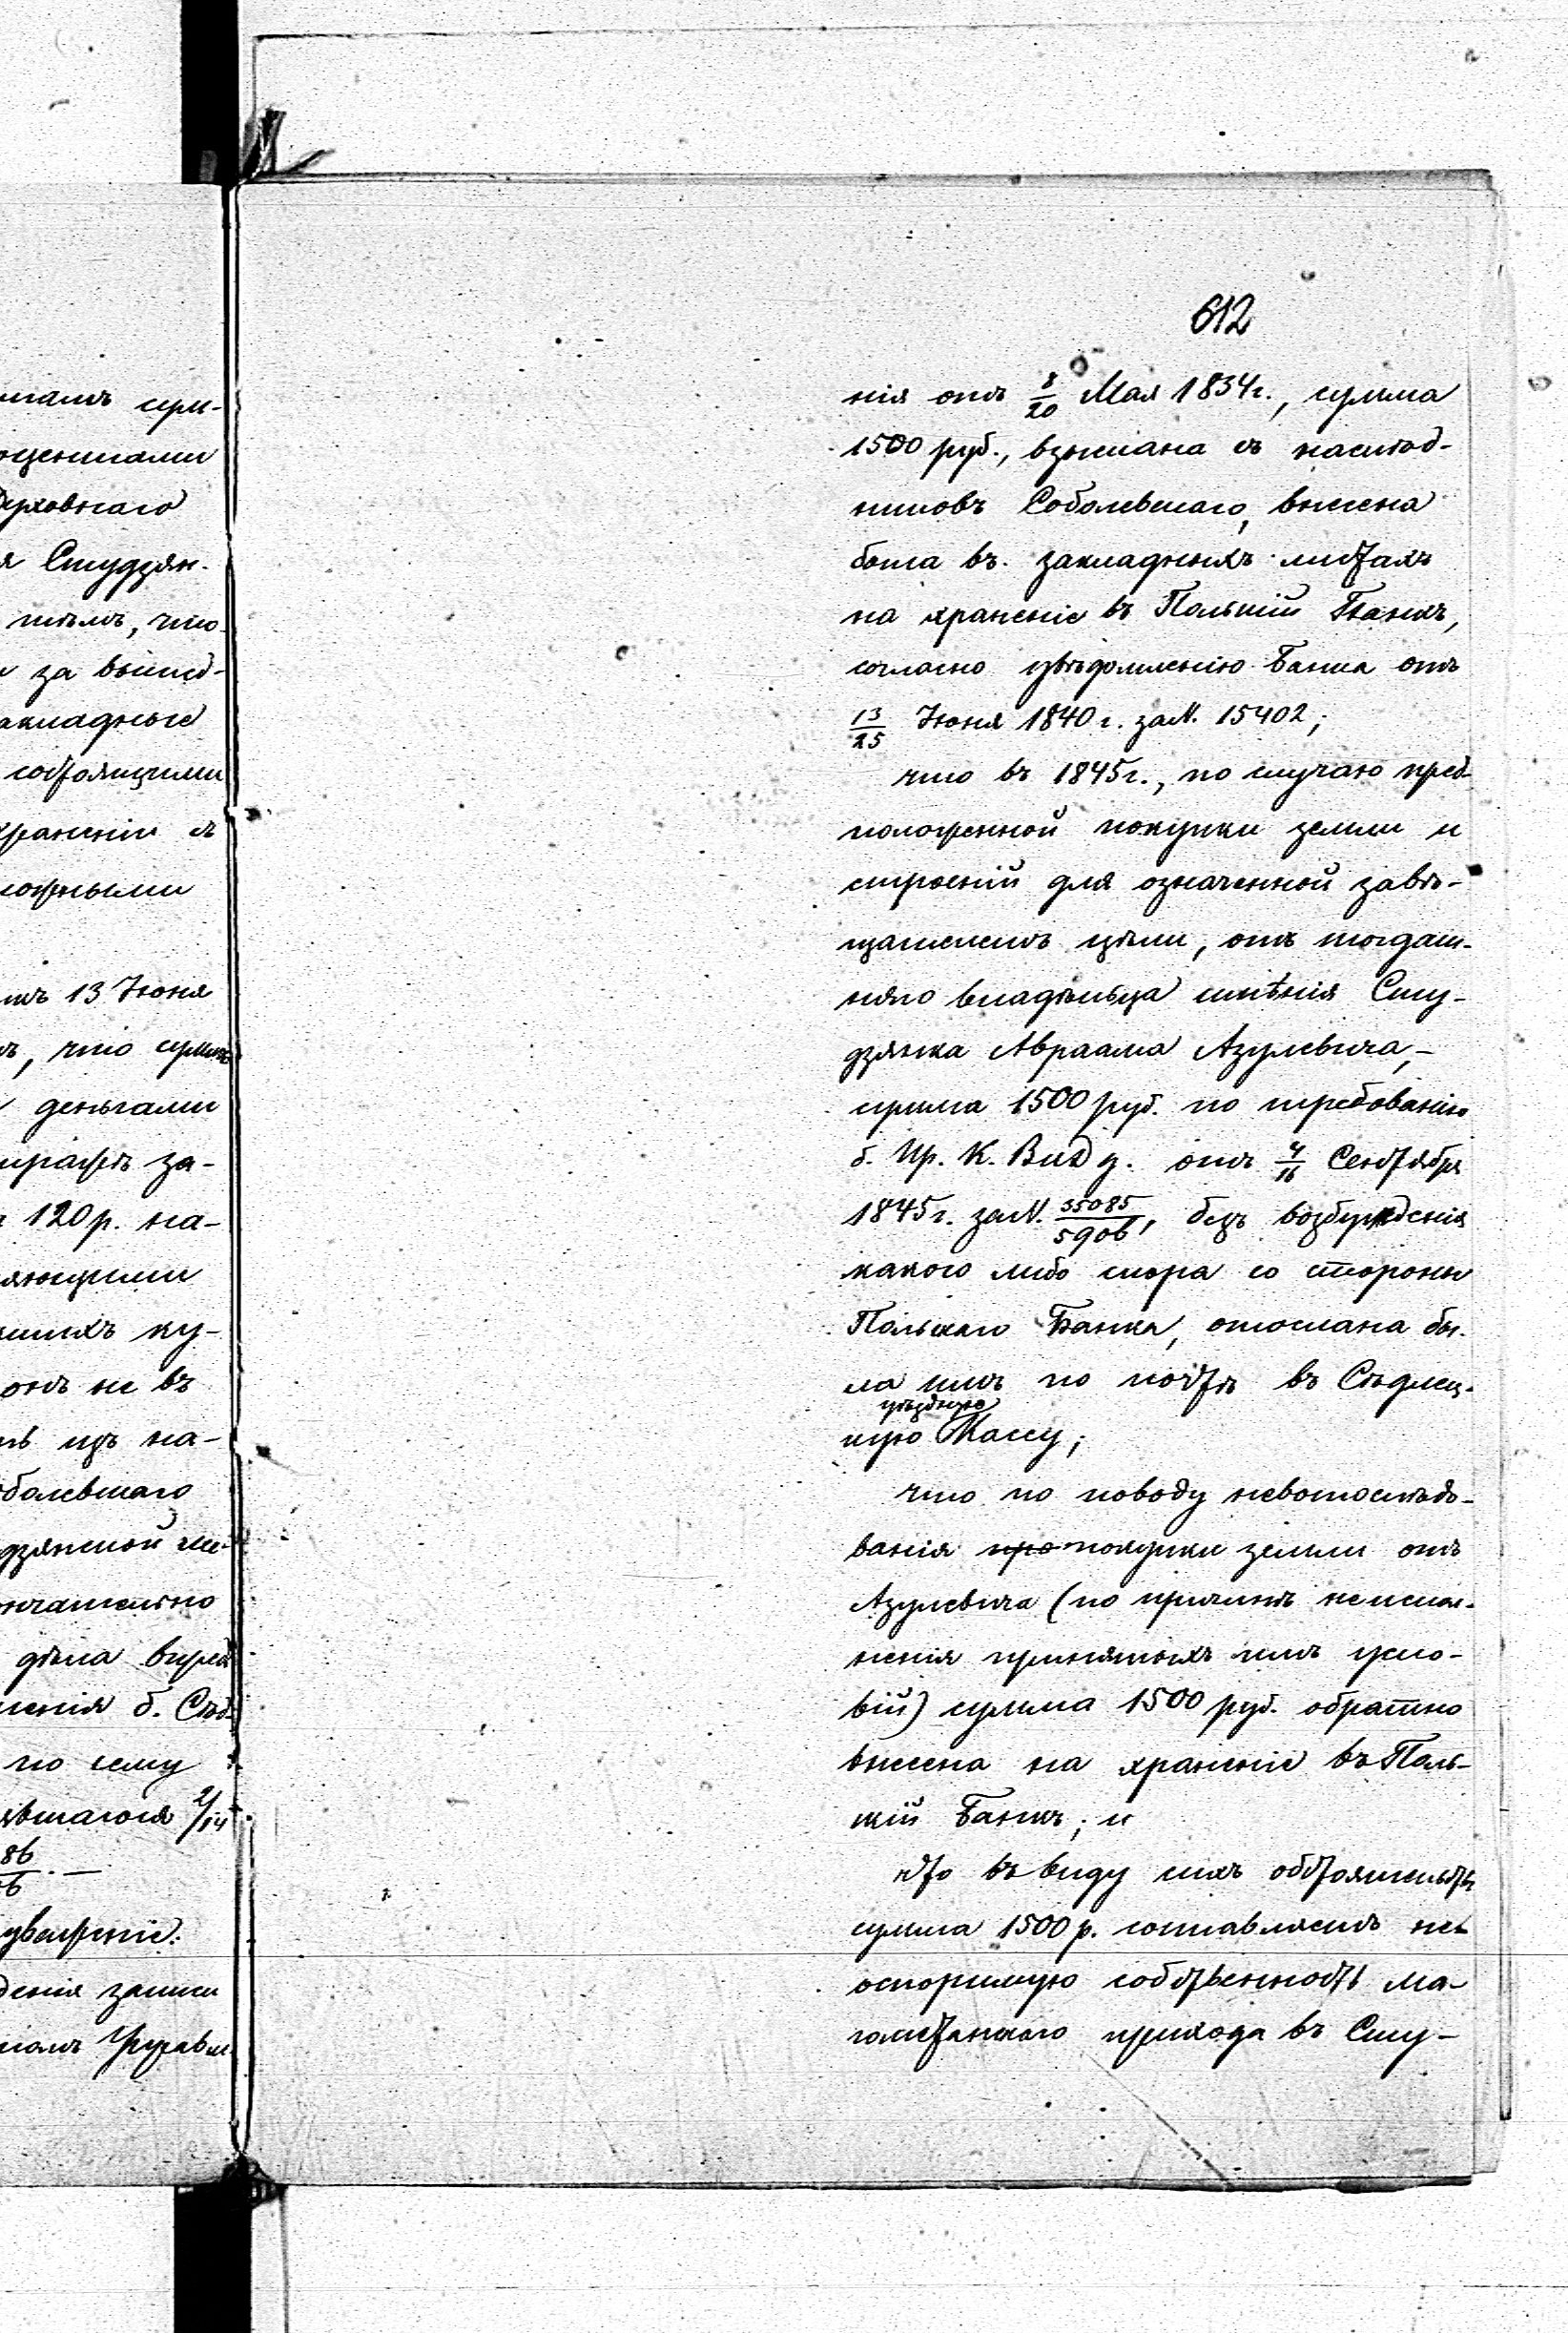 612
нія отъ 8/20 Мая 1834 г., сумма
1500 руб., взыскана съ наслѣд-
никовъ Соболевскаго, внесена
была въ закладныхъ листахъ
на храненіе въ Польскій Банкъ,
согласно увѣдомленію Банка отъ
13/25 Іюня 1840 г. за N. 15402;
что въ 1845 г., по случаю пред-
положенной покупки земли и
строеній для означенной завѣ-
щателемъ цѣли, отъ тогдаш-
няго владѣльца имѣнія Сту-
дзянка Авраама Азулевича, –
сумма 1500 руб. по требованію
б. Пр. К. Вн. Д. отъ 4/16 Сентября
1845 г. за N. 35085/5906, безъ возбужденія
какого либо спора со стороны
Польскаго Банка, отослана бы-
ла имъ по почтѣ въ Сѣдлец-
уѣздную
кую Кассу;
что по поводу невопослѣдо-
ванія про покупки земли отъ
Азулевича (по причинѣ неиспол-
ненія принятыхъ имъ усло-
вій) сумма 1500 руб. обратно
внесена на храненіе въ Поль-
скій Банкъ; и
что въ виду сихъ обстоятельствъ
сумма 1500 р. составляетъ не-
оспоримую собственность ма-
гометанскаго прихода въ Сту-
сум-
процентами
Верховнаго
Студзян-
тѣмъ, что
за выше-
закладные
состоящими
храненіи въ
13 Іюня
, что сумма
деньгами
за-
120 р. на-
ку-
не въ
изъ на-
Соболевскаго
окончательно
дѣла
б. Сѣд-
по сему
2/14
86
дѣнія записи